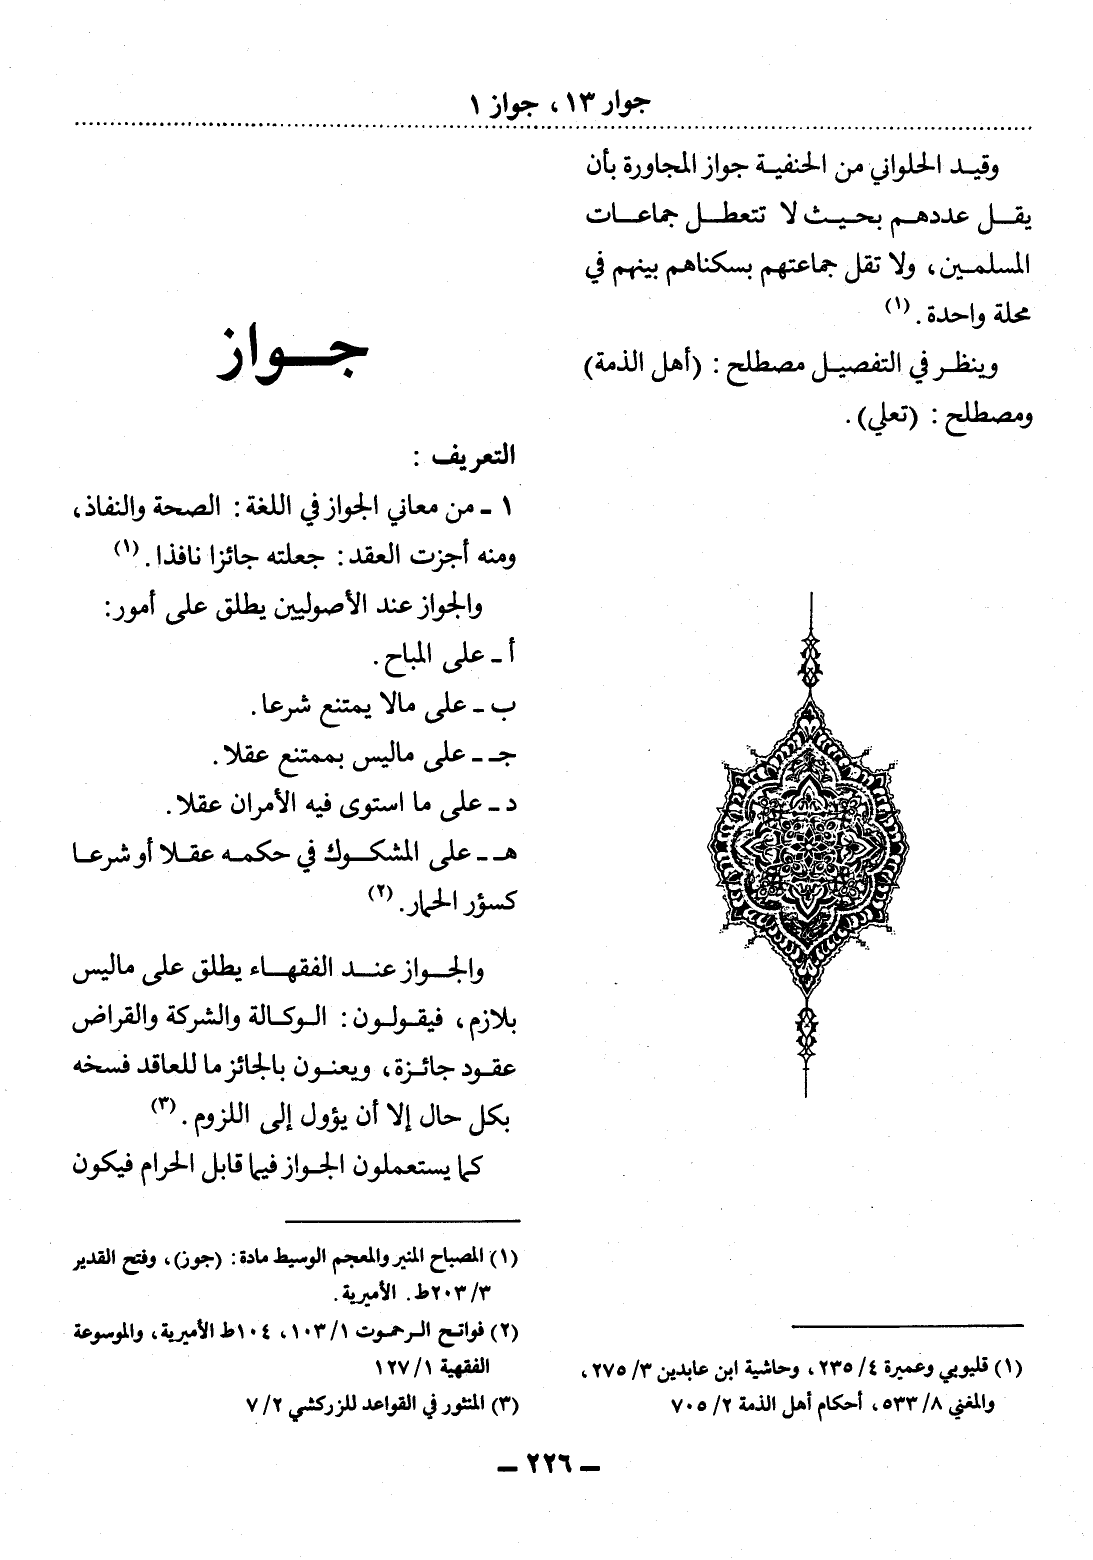 جوار ١٣ ، جواز ١
وقيد الحلواني من الحنفية جواز المجاورة بأن
يقل عددهم بحيث لا تتعطل جماعات
المسلمين ، ولا تقل جماعتهم بسكناهم بينهم في
محلة واحدة . (١)
وينظر في التفصيل مصطلح : (أهل الذمة)
ومصطلح : (تعلي) .
(١) قليوبي وعميرة ٤/ ٢٣٥ ، وحاشية ابن عابدين ٣/ ٢٧٥ ،
والمغني ٨/ ٥٣٣ ، أحكام أهل الذمة ٢/ ٧٠٥
جواز
التعريف :
١ ـ من معاني الجواز في اللغة : الصحة والنفاذ ،
ومنه أجزت العقد : جعلته جائزا نافذا . (١)
والجواز عند الأصوليين يطلق على أمور :
أ ـ على المباح .
ب ـ على مالا يمتنع شرعا .
جـ ـ على ماليس بممتنع عقلا .
د ـ على ما استوى فيه الأمران عقلا .
هـ ـ على المشكوك في حكمه عقلا أو شرعا
كسؤر الحمار . (٢)
والجواز عند الفقهاء يطلق على ماليس
بلازم ، فيقولون : الوكالة والشركة والقراض
عقود جائزة ، ويعنون بالجائز ما للعاقد فسخه
بكل حال إلا أن يؤول إلى اللزوم . (٣)
كما يستعملون الجواز فيما قابل الحرام فيكون
(١) المصباح المنير والمعجم الوسيط مادة : (جوز) ، وفتح القدير
٣/ ٢٠٣ط . الأميرية .
(٢) فواتح الرحموت ١/ ١٠٣ ، ١٠٤ط الأميرية ، والموسوعة
الفقهية ١/ ١٢٧
(٣) المنثور في القواعد للزركشي ٢/ ٧
ـ ٢٢٦ ـ